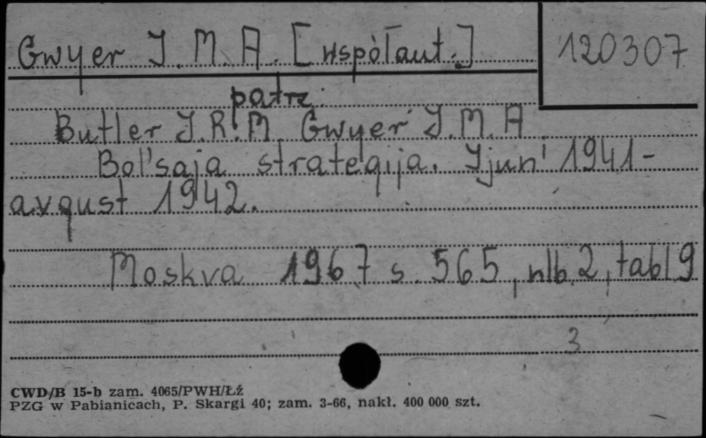 Gwyer J. M. A. [współaut.]
120307
patrz
Butler J. R. M. Gwyer J. M. A.
Bol'saja strategija. Ijun' 1941-
avgust 1942.
Moskva 1967 s. 565, nlb. 2, tabl 9
3
CWD/B 15-b zam. 4065/PWH/Łź
PZG w Pabianicach, P. Skargi 40; zam. 3-66, nakł. 400 000 szt.